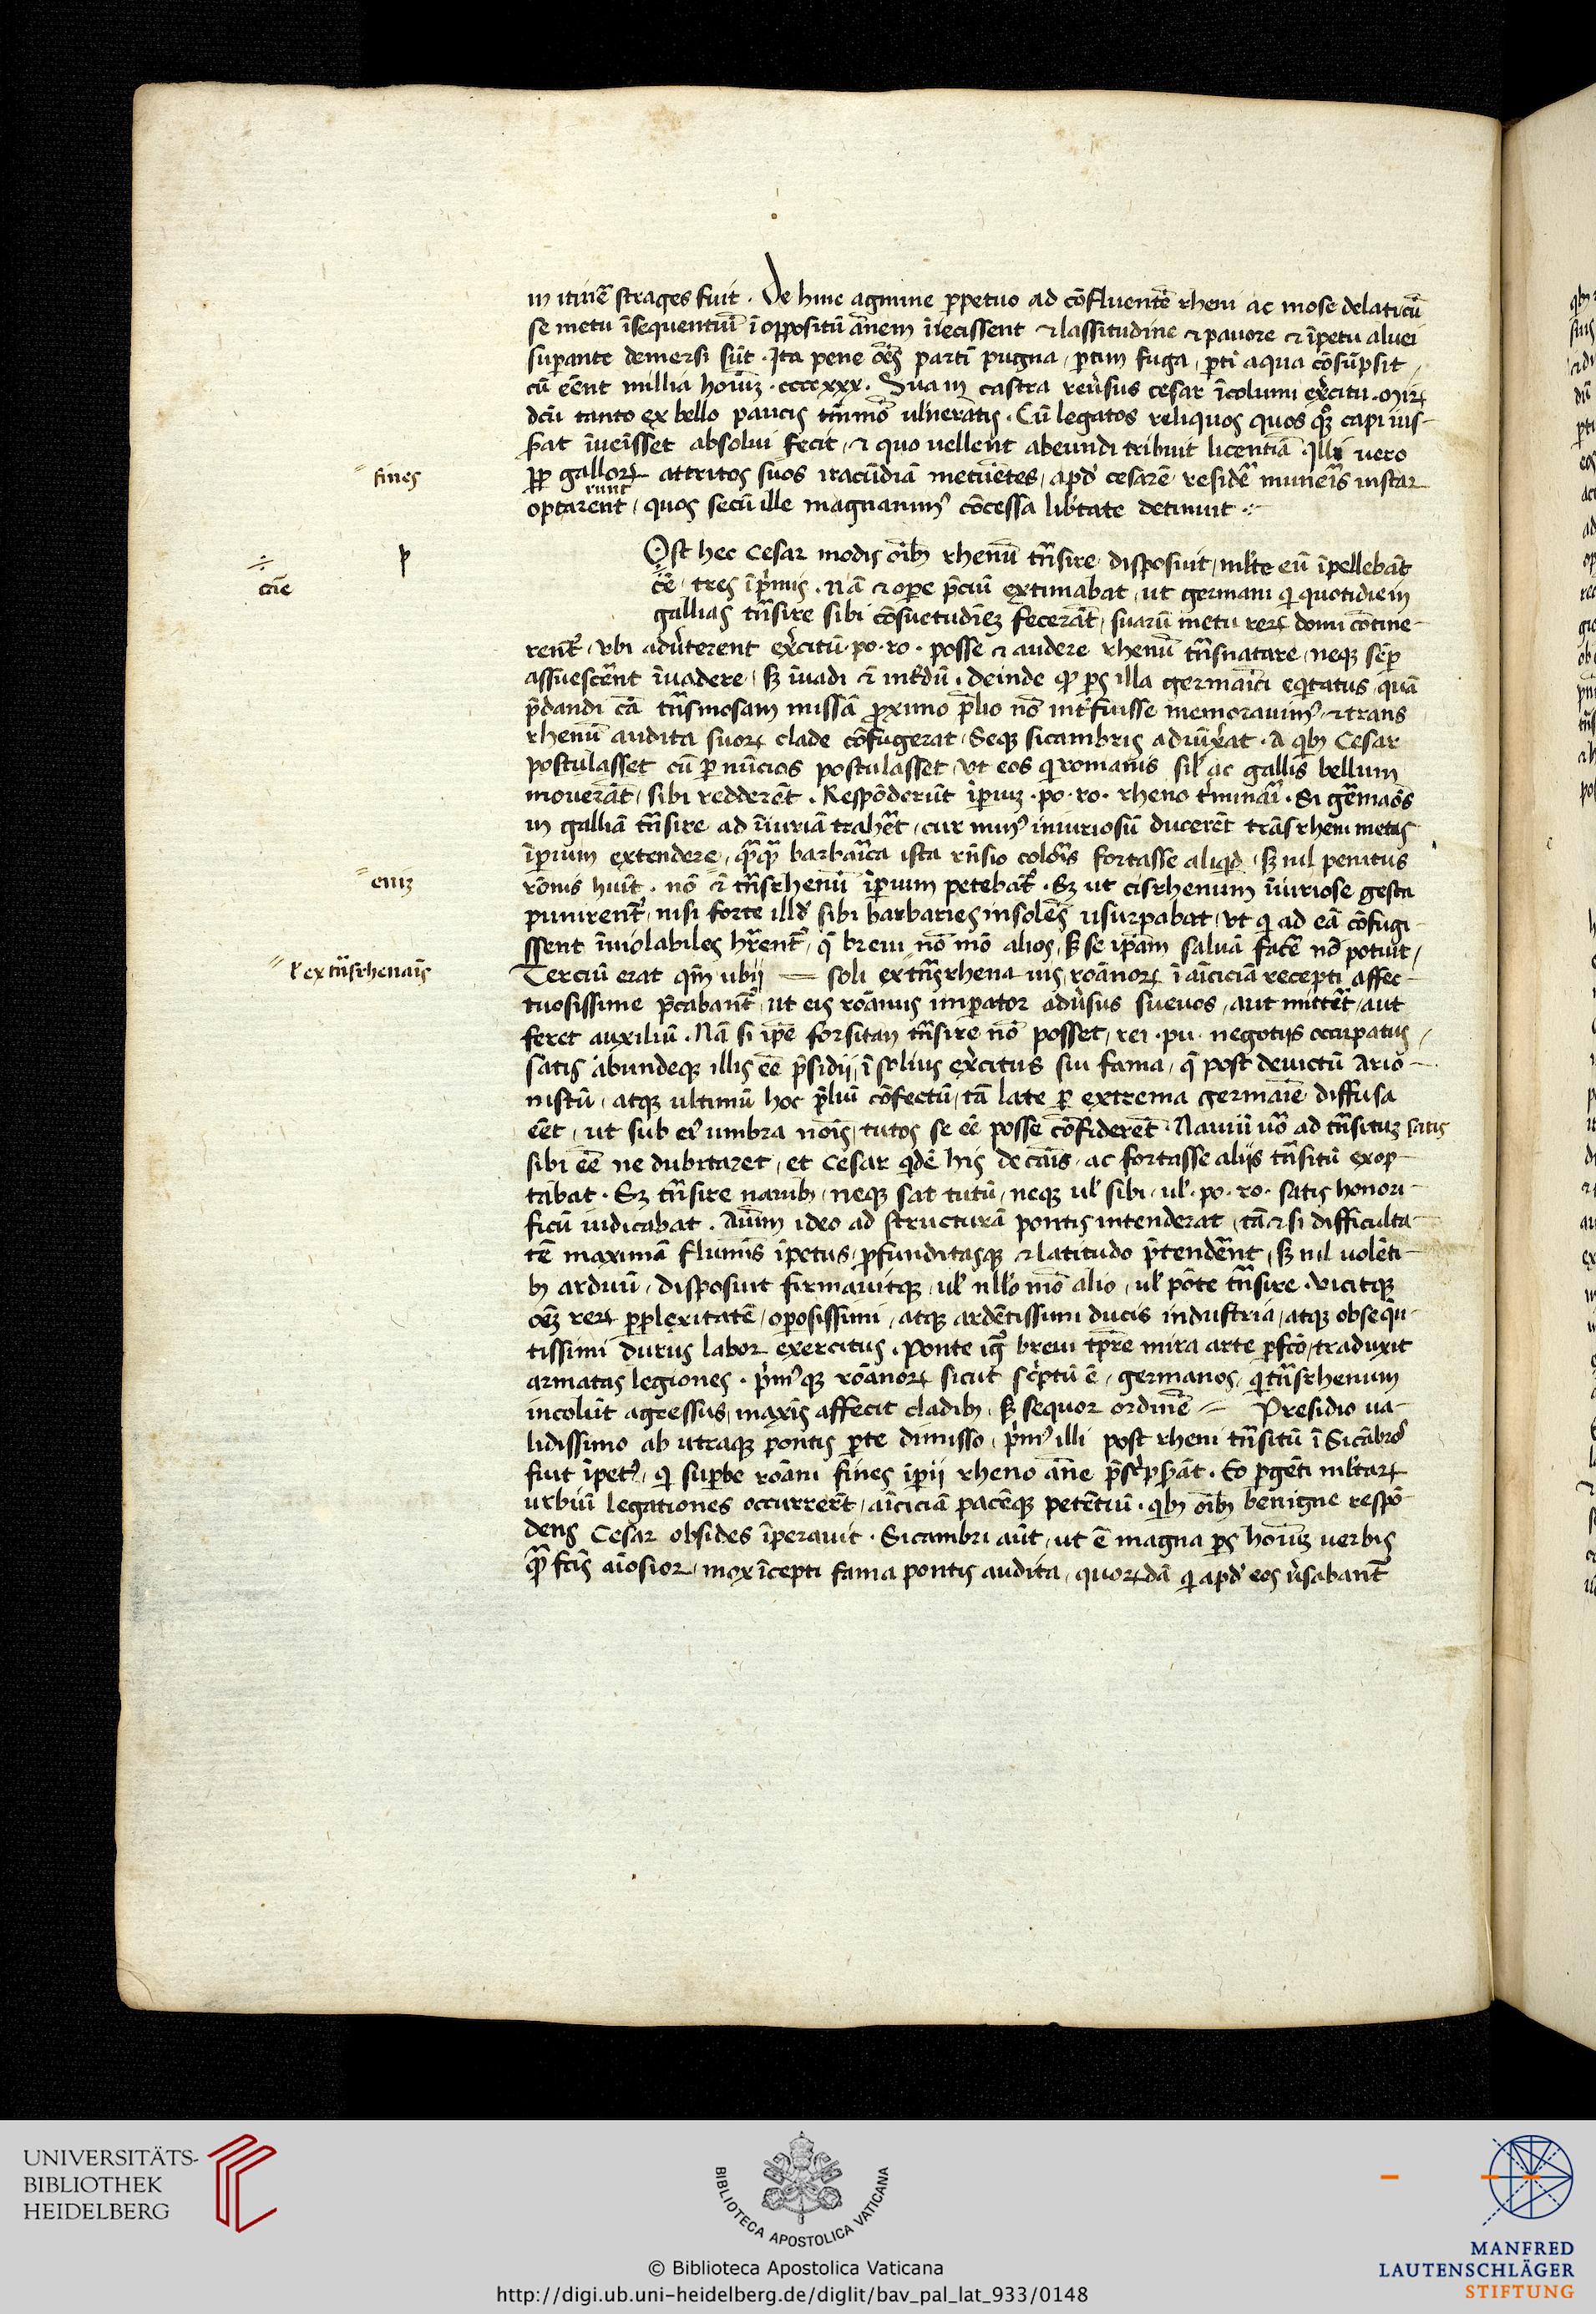 in itinē strages fuit . De hinc agmine ꝑpetuo ad cōfluentē rheni ac mose delati cū
se metu īsequentiū ī oppositū ānem īiecissent ⁊ lassitudine ⁊ pauore ⁊ īpetu aluei
suꝑante demersi sūt . Ita pene oēs partī pugna , ꝑtim fuga , ꝑtī aqua cōsūpsit ,
cū eēnt millia hoīuꝫ . ccccxxx . Sua in castra reūsus cesar īcolumi ex̄citu . Mirꝝ
dcū tanto ex bello paucis tm̄mō uul̄neratis . Cū legatos reliquos quos capi ius-
ꝫat īueīsset absolui fecit , ⁊ quo uellent abeundi tribuit licentiā . Illi uero
fines
ꝓꝑ gallorꝝ attritos suos iracūdiā metuētes , apd̄ cesarē residē muneīs instar
runt
optarent , quos secū ille magnanimꝰ cōcessa lib̄tate detinuit .
p
Ost hec Cesar modis oīb rhenū tn̄sire disposuit , ml̄te eū īpellebāt
cāe
cē , tres īp̄mis . Nā ⁊ oꝑe p̄ciū extimabat , ut germani qi quotidie in
gallias tn̄sire sibi cōsuetudīeꝫ fecerāt , suarū metu rerꝝ domi cōtine-
rent̄ , vbi adūterent ex̄citū . po . ro . posse ⁊ audere rhenū tn̄snatare , neqꝫ sēꝑ
assuescēnt īuadere , sꝫ īuadi ⁊ int̄dū . deinde qꝫ ꝑs illa germaīci eqitatus , quā
p̄dandi cā tn̄smosam missā ꝓximo p̄lio nō int̄fuisse memorauimꝰ , ⁊ trans
rhenū audita suorꝝ clade cōfugerat , Seqꝫ sicambris adiūx̄at . A qib Cesar
postulasset cū ꝑ nūcios postulasset , vt eos qi romanis sil̄ ac gallis bellum
mouerāt , sibi redderēt . Respōderūt īꝑiuꝫ . po . ro . rheno t̄minārī . Si gēmaōs
in galliā tn̄sire ad īiuriā trahēt , cur minꝰ iniuriosū ducerēt trās rheni metas
īꝑium extendere , qꝫqꝫ barbaīca ista rn̄sio coloīs fortasse aliqd , sꝫ nil penitus
eniꝫ
rōnis hūit . nō ⁊ tn̄srhenū īꝑium petebāt̄ . Sꝫ ut cisrhenum īiuriose gesta
punirent̄ , nisi forte illd̄ sibi barbaries insolēs usurpabat , vt qi ad eā cōfugi-
ssent īuiolabiles hr̄ent̄ , q̄ breui nō mō alios , sꝫ se iꝑam saluā facē nō potuit ,
l̄ ex tn̄srhenaīs
Terciū erat qm̄ ubij — soli ex tn̄srhena nis , roānorꝝ ī aīciciā recepti affec-
tuosissime p̄cabant̄ , ut eis roānus imꝑator adūsus sueuos , aut mittēt , aut
feret auxiliū . Nā si iꝑe forsitan tn̄sire nō posset , rei . pu . negotijs occupatus ,
satis abundeqꝫ illis eē p̄sidij , ī solius ex̄citus sui fama , q̄ post deuictū Ario-
nistū , atqꝫ ultimū hoc p̄liū cōfectū , tā late ꝑ extrema germaīe diffusa
eēt , ut sub eiꝰ umbra noīs , tutos se eē posse cōfiderēt . Nauiū uō ad tn̄situꝫ satis
sibi eē ne dubitaret , et Cesar qidē his de cāis , ac fortasse alijs tn̄sitū exop-
tabat . Sꝫ tn̄sire nauib , neqꝫ sat tutū , neqꝫ ul̄ sibi , ul̄ . po . ro . satis honori-
ficū iudicabat . Aīum ideo ad structurā pontis intenderat , tā⁊si difficulta-
tē maximā flumīs īpetus , ꝓfunditasqꝫ ⁊ latitudo p̄tendēnt , sꝫ nil uolēti-
b arduū , disposuit firmauitqꝫ , ul̄ nll̄o mō alio , ul̄ pōte tn̄sire . vicitqꝫ
oēꝫ rerꝝ ꝑplexitatē , oꝑosissimi , atqꝫ ardētissimi ducis industria , atqꝫ obseqn̄-
tissimi durus labor exercitus . Ponte igꝰ breui tp̄re mira arte ꝑfcō , traduxit
armatas legiones . p̄mꝰqꝫ roānorꝝ sicut sc̄ptū ē , germanos , qi tn̄srhenum
incolūt agressus , maxīs affecit cladib , sꝫ sequor ordinē — Presidio ua-
lidissimo ab utraqꝫ pontis ꝑte dimisso , p̄mꝰ illi post rheni tn̄situ ī Sicābros
fuit īpetꝰ , qi suꝑbe roāni fines īꝑij rheno āne p̄sc̄pserāt . Eo ꝑgēti ml̄tarꝝ
urbiū legationes occurrerēt , aīciciā pacēqꝫ petētiū . qib oīb benigne respō-
dens Cesar obsides īperauit . Sicambri aūt , ut ē magna ꝑs hoīuꝫ uerbis
qꝫ fc̄is aīosior , mox īcepti fama pontis audita , quorꝝdā qi apd̄ eos ūsabant̄
UNIVERSITÄTS-
BIBLIOTHEK
HEIDELBERG
BIBLIOTECA APOSTOLICA VATICANA
© Biblioteca Apostolica Vaticana
http://digi.ub.uni-heidelberg.de/diglit/bav_pal_lat_933/0148
MANFRED
LAUTENSCHLÄGER
STIFTUNG